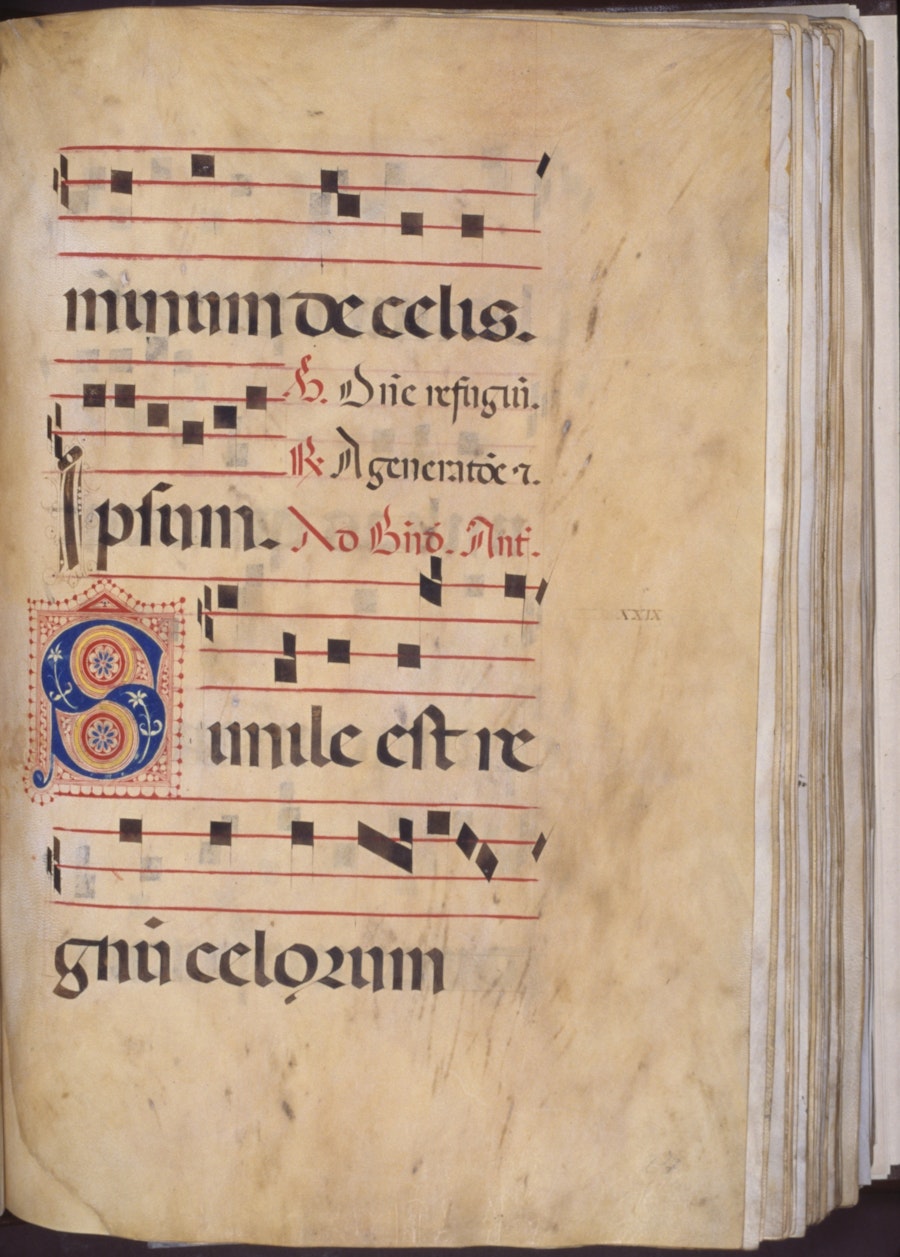 minum de celis.
V. Dn̄e refugiū.
R. A generatōe ⁊.
Ipsum. Ad Bn̄d̄. Ant̄.
Simile est re
gnū celorum
XXIX